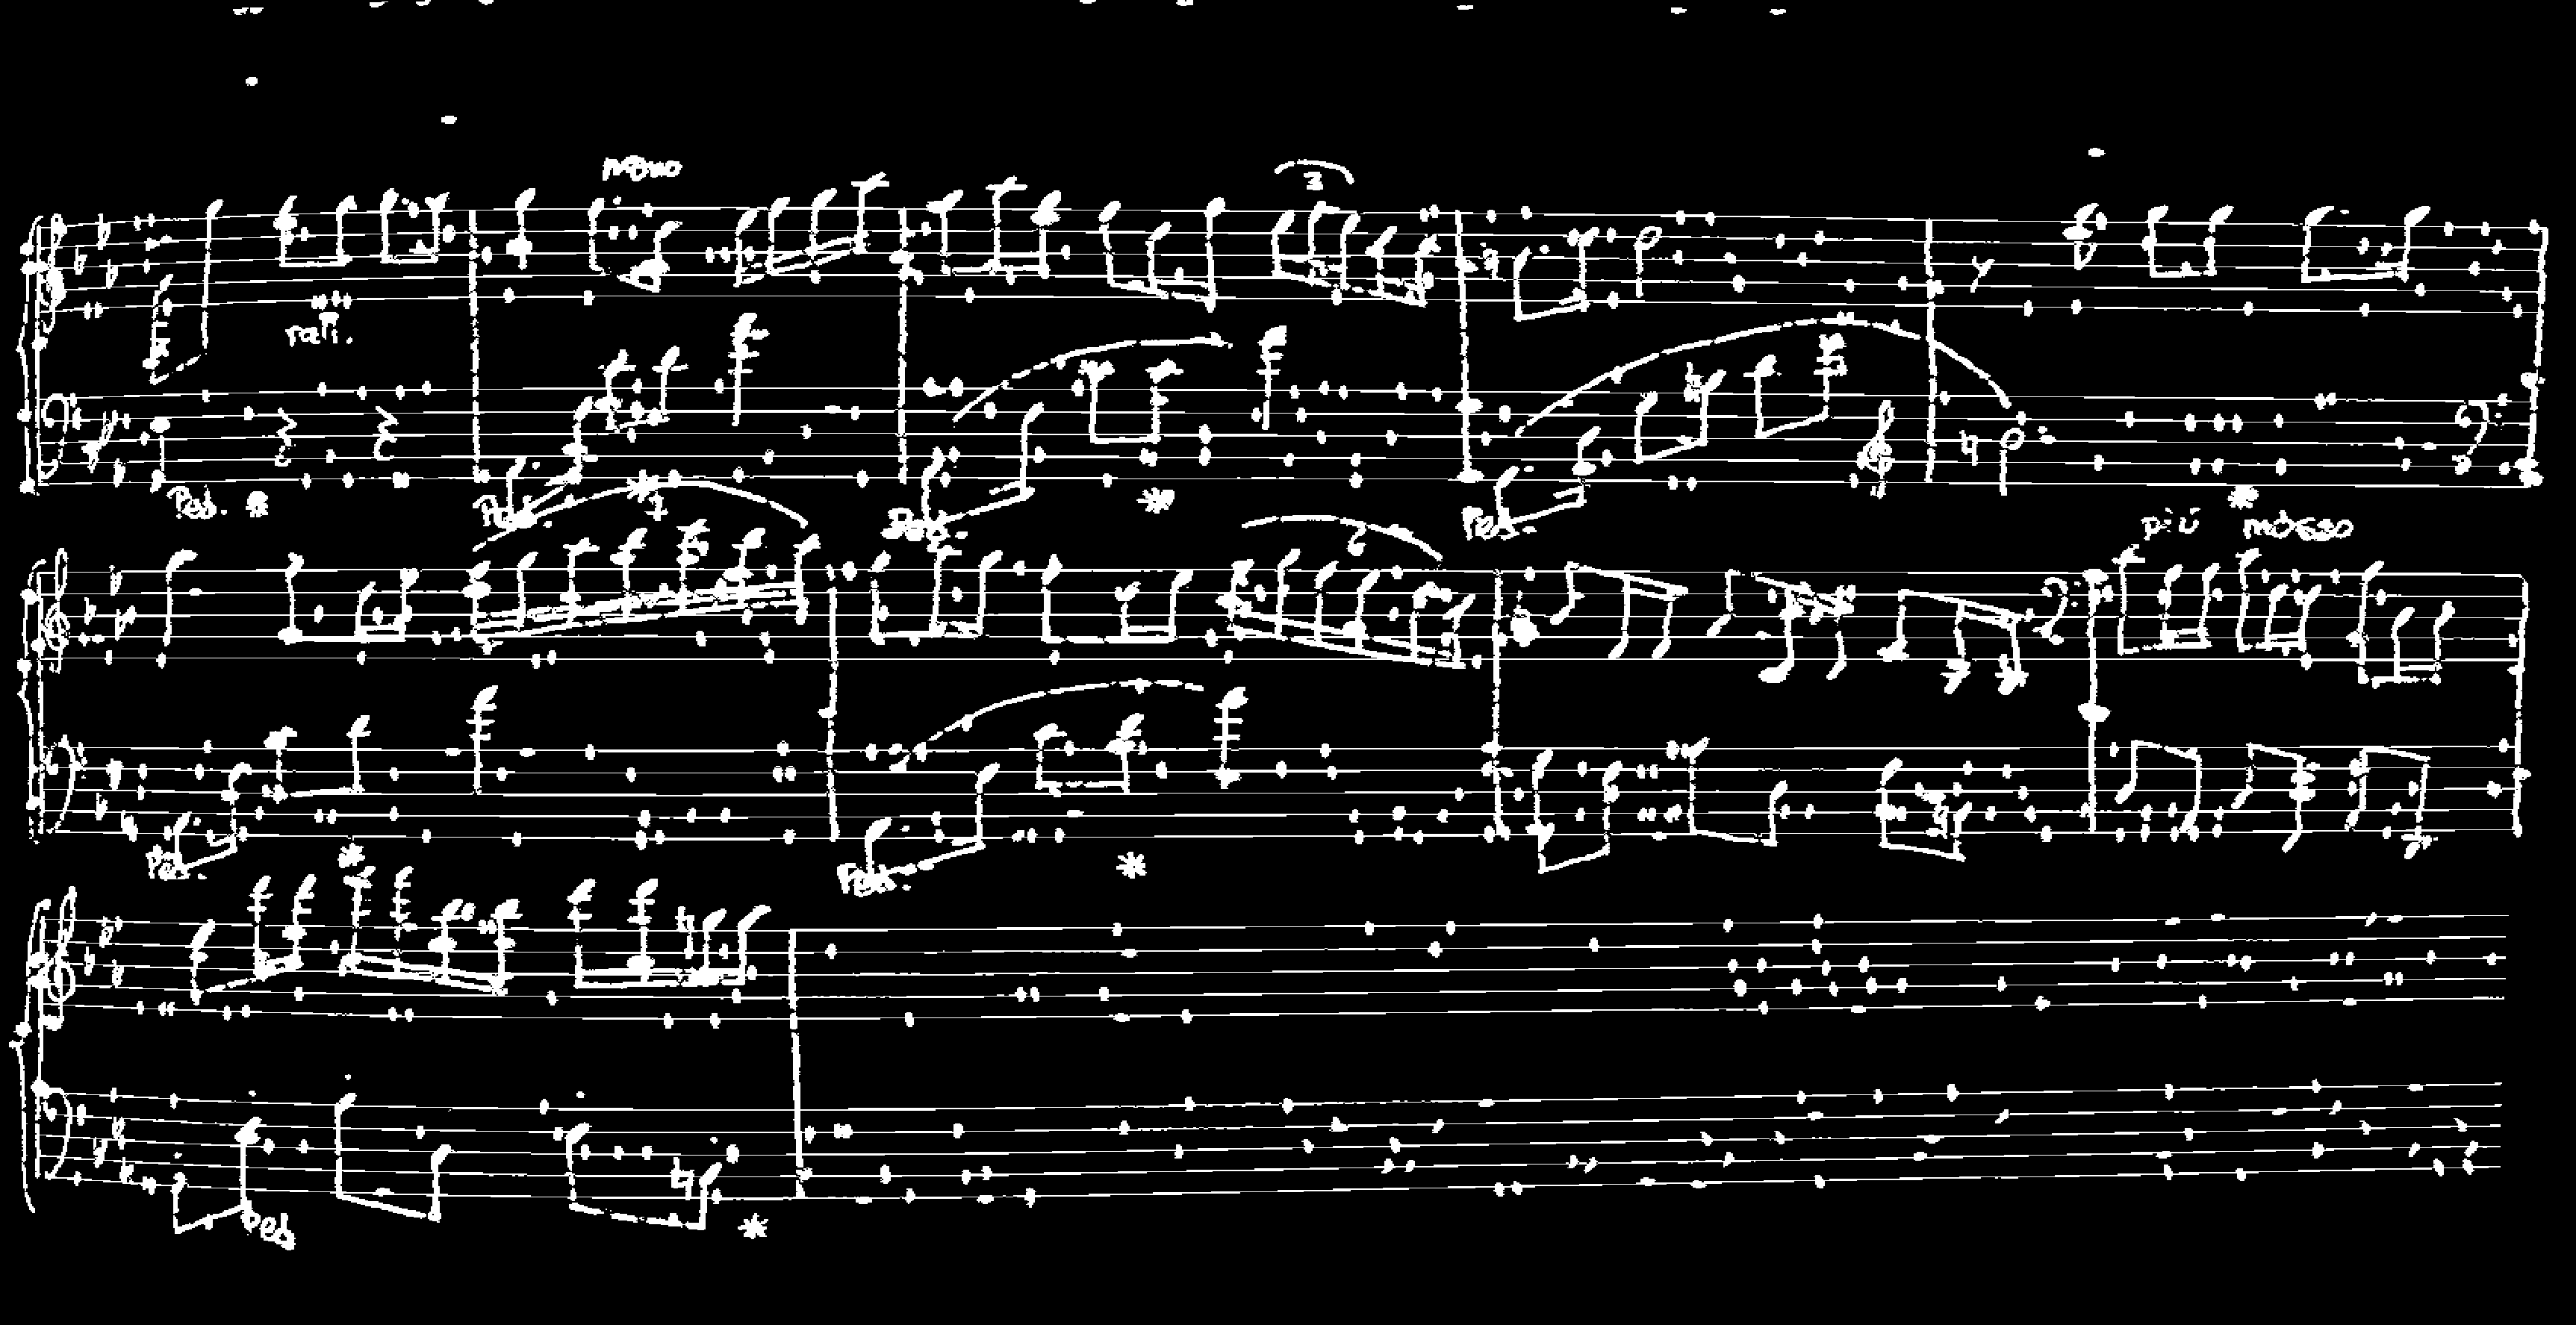 meno
3
rall.
Ped. * Ped. * 7 Ped. * Ped. *
6 più mosso
Ped. * Ped. *
Ped *